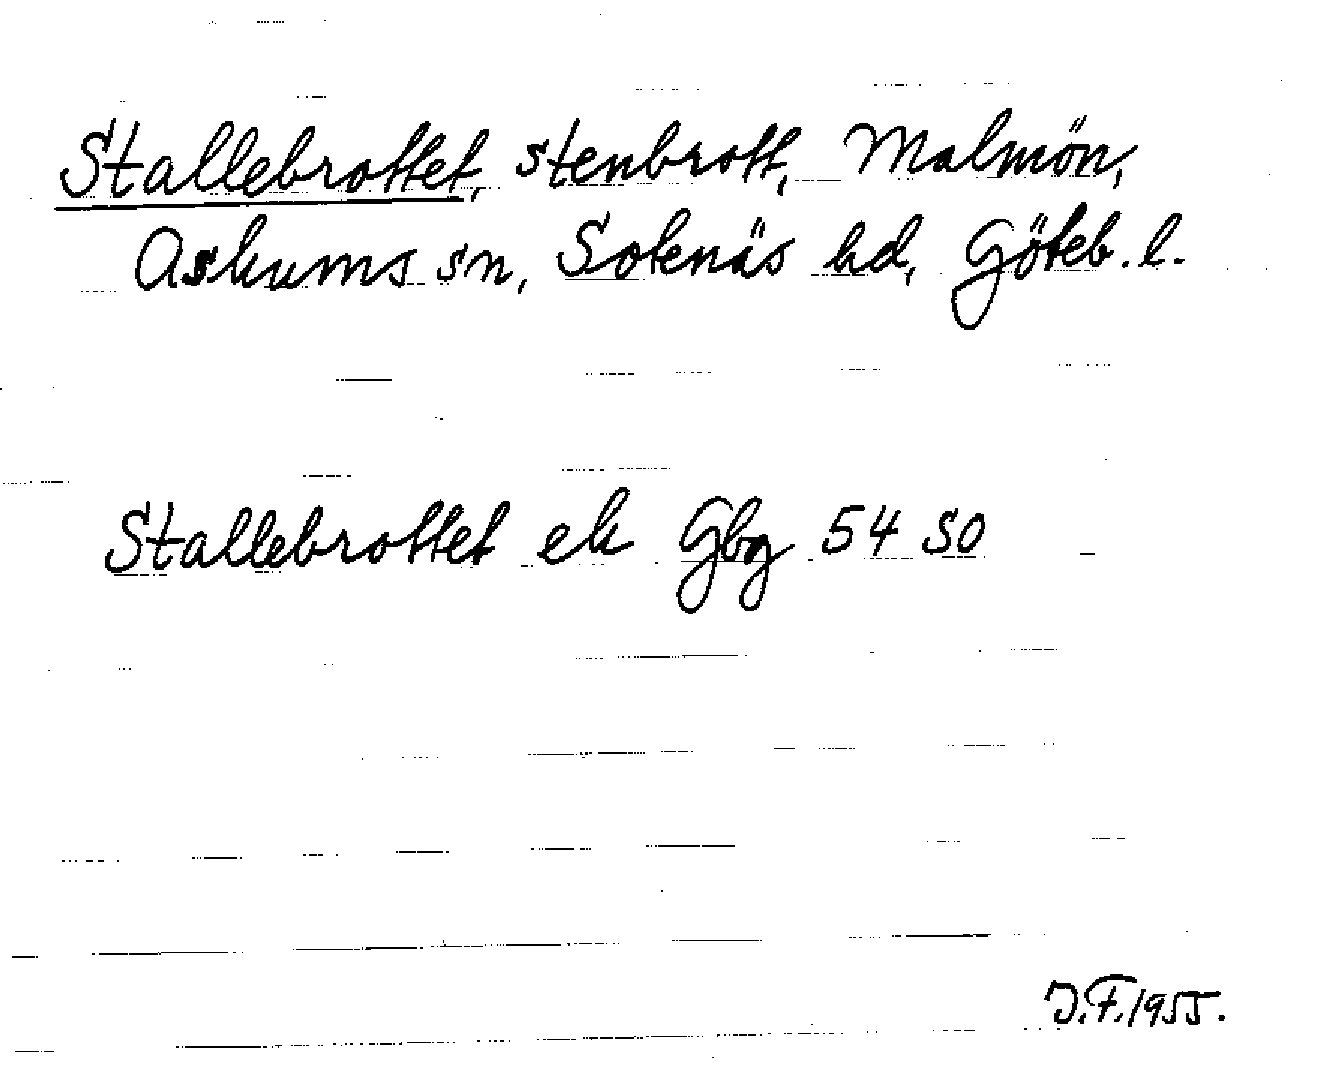 Stallebrottet, stenbrott, Malmön,
Askums sn, Sotenäs hd, Göteb. l.
Stallebrottet ek Gbg 54 SO
J.F. 1955.